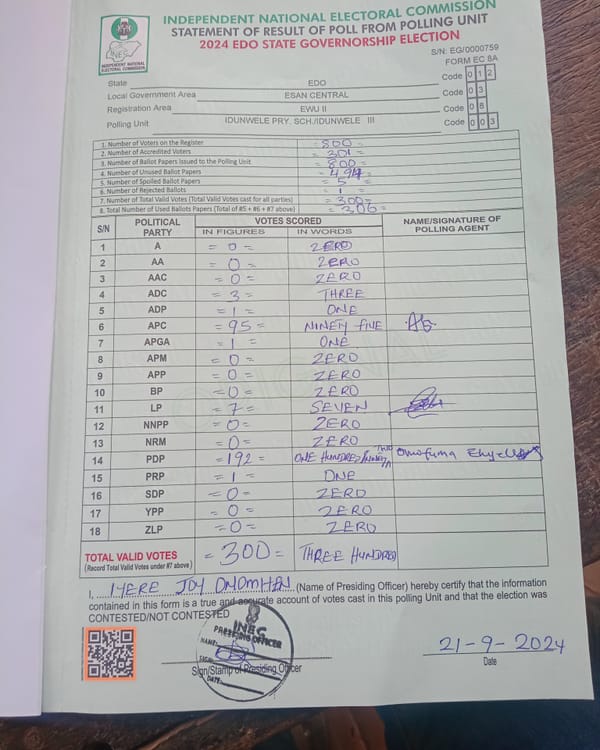 INDEPENDENT NATIONAL ELECTORAL COMMISSION
STATEMENT OF RESULT OF POLL FROM POLLING UNIT
2024 EDO STATE GOVERNORSHIP ELECTION
INEC
INDEPENDENT NATIONAL ELECTORAL COMMISSION
S/N: EG/0000759
FORM EC 8A
State EDO Code 0 1 2
Local Government Area ESAN CENTRAL Code 0 3
Registration Area EWU II Code 0 8
Polling Unit IDUNWELE PRY. SCH./IDUNWELE III Code 0 0 3
1. Number of Voters on the Register =800=
2. Number of Accredited Voters =301=
3. Number of Ballot Papers Issued to the Polling Unit =800=
4. Number of Unused Ballot Papers =494=
5. Number of Spoiled Ballot Papers =5=
6. Number of Rejected Ballots =1=
7. Number of Total Valid Votes (Total Valid Votes cast for all parties) =300=
8. Total Number of Used Ballots Papers (Total of #5 + #6 + #7 above) =306=
S/N POLITICAL PARTY VOTES SCORED NAME/SIGNATURE OF POLLING AGENT
IN FIGURES IN WORDS
1 A =0= ZERO
2 AA =0= ZERO
3 AAC =0= ZERO
4 ADC =3= THREE
5 ADP =1= ONE
6 APC =95= NINETY FIVE
7 APGA =1= ONE
8 APM =0= ZERO
9 APP =0= ZERO
10 BP =0= ZERO
11 LP =7= SEVEN
12 NNPP =0= ZERO
13 NRM =0= ZERO
14 PDP =192= ONE HUNDRED/NINETY TWO
15 PRP =1= ONE
16 SDP =0= ZERO
17 YPP =0= ZERO
18 ZLP =0= ZERO
TOTAL VALID VOTES =300= THREE HUNDRED
(Record Total Valid Votes under #7 above)
I, ITERE JOY ONOMHEN (Name of Presiding Officer) hereby certify that the information
contained in this form is a true and accurate account of votes cast in this polling Unit and that the election was
CONTESTED/NOT CONTESTED
INEC
PRESIDING OFFICER
NAME:
SIGN:
DATE:
Sign/Stamp of Presiding Officer
21-9-2024
Date